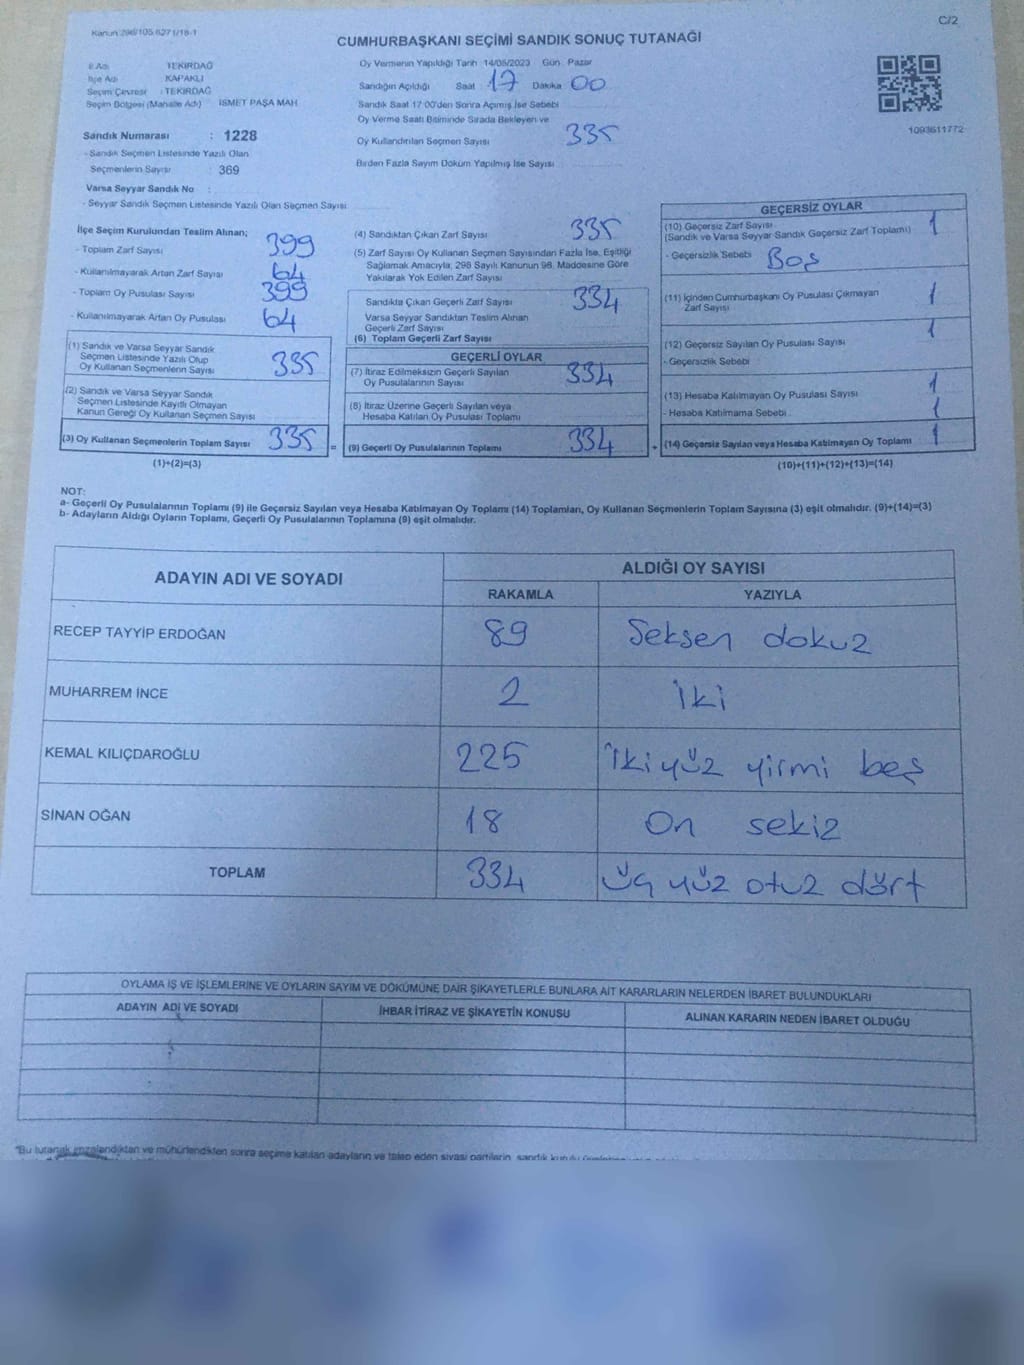 C/2
Kanun 298/105 6271/18-1
CUMHURBAŞKANI SEÇİMİ SANDIK SONUÇ TUTANAĞI
İl Adı : TEKİRDAĞ
İlçe Adı : KAPAKLI
Seçim Çevresi : TEKİRDAĞ
Seçim Bölgesi (Mahalle Adı) : İSMET PAŞA MAH
Sandık Numarası : 1228
- Sandık Seçmen Listesinde Yazılı Olan
Seçmenlerin Sayısı : 369
Varsa Seyyar Sandık No :
- Seyyar Sandık Seçmen Listesinde Yazılı Olan Seçmen Sayısı
Oy Vermenin Yapıldığı Tarih 14/05/2023 Gün Pazar
Sandığın Açıldığı Saat : 17 Dakika 00
Sandık Saat 17:00'den Sonra Açılmış İse Sebebi
Oy Verme Saati Bitiminde Sırada Bekleyen ve
Oy Kullandırılan Seçmen Sayısı 335
Birden Fazla Sayım Döküm Yapılmış İse Sayısı
1093611772
İlçe Seçim Kurulundan Teslim Alınan;
- Toplam Zarf Sayısı 399
- Kullanılmayarak Artan Zarf Sayısı 64
- Toplam Oy Pusulası Sayısı 399
- Kullanılmayarak Artan Oy Pusulası 64
(1) Sandık ve Varsa Seyyar Sandık
Seçmen Listesinde Yazılı Olup
Oy Kullanan Seçmenlerin Sayısı 335
(2) Sandık ve Varsa Seyyar Sandık
Seçmen Listesinde Kayıtlı Olmayan
Kanun Gereği Oy Kullanan Seçmen Sayısı
(3) Oy Kullanan Seçmenlerin Toplam Sayısı 335 =
(1)+(2)=(3)
(4) Sandıktan Çıkan Zarf Sayısı 335
(5) Zarf Sayısı Oy Kullanan Seçmen Sayısından Fazla İse, Eşitliği
Sağlamak Amacıyla, 298 Sayılı Kanunun 98. Maddesine Göre
Yakılarak Yok Edilen Zarf Sayısı
Sandıkta Çıkan Geçerli Zarf Sayısı 334
Varsa Seyyar Sandıktan Teslim Alınan
Geçerli Zarf Sayısı
(6) Toplam Geçerli Zarf Sayısı
GEÇERLİ OYLAR
(7) İtiraz Edilmeksizin Geçerli Sayılan
Oy Pusulalarının Sayısı 334
(8) İtiraz Üzerine Geçerli Sayılan veya
Hesaba Katılan Oy Pusulası Toplamı
(9) Geçerli Oy Pusulalarının Toplamı 334 +
GEÇERSİZ OYLAR
(10) Geçersiz Zarf Sayısı 1
(Sandık ve Varsa Seyyar Sandık Geçersiz Zarf Toplamı)
- Geçersizlik Sebebi Boş
(11) İçinden Cumhurbaşkanı Oy Pusulası Çıkmayan 1
Zarf Sayısı
(12) Geçersiz Sayılan Oy Pusulası Sayısı 1
- Geçersizlik Sebebi
(13) Hesaba Katılmayan Oy Pusulası Sayısı 1
- Hesaba Katılmama Sebebi 1
(14) Geçersiz Sayılan veya Hesaba Katılmayan Oy Toplamı 1
(10)+(11)+(12)+(13)=(14)
NOT:
a- Geçerli Oy Pusulalarının Toplamı (9) ile Geçersiz Sayılan veya Hesaba Katılmayan Oy Toplamı (14) Toplamları, Oy Kullanan Seçmenlerin Toplam Sayısına (3) eşit olmalıdır. (9)+(14)=(3)
b- Adayların Aldığı Oyların Toplamı, Geçerli Oy Pusulalarının Toplamına (9) eşit olmalıdır.
ADAYIN ADI VE SOYADI ALDIĞI OY SAYISI
RAKAMLA YAZIYLA
RECEP TAYYİP ERDOĞAN 89 Seksen dokuz
MUHARREM İNCE 2 İki
KEMAL KILIÇDAROĞLU 225 İkiyüz yirmi beş
SİNAN OĞAN 18 On sekiz
TOPLAM 334 Üç yüz otuz dört
OYLAMA İŞ VE İŞLEMLERİNE VE OYLARIN SAYIM VE DÖKÜMÜNE DAİR ŞİKAYETLERLE BUNLARA AİT KARARLARIN NELERDEN İBARET BULUNDUKLARI
ADAYIN ADI VE SOYADI İHBAR İTİRAZ VE ŞİKAYETİN KONUSU ALINAN KARARIN NEDEN İBARET OLDUĞU
"Bu tutanak imzalandıktan ve mühürlendikten sonra seçime katılan adayların ve talep eden siyasi partilerin, sandık kurulu